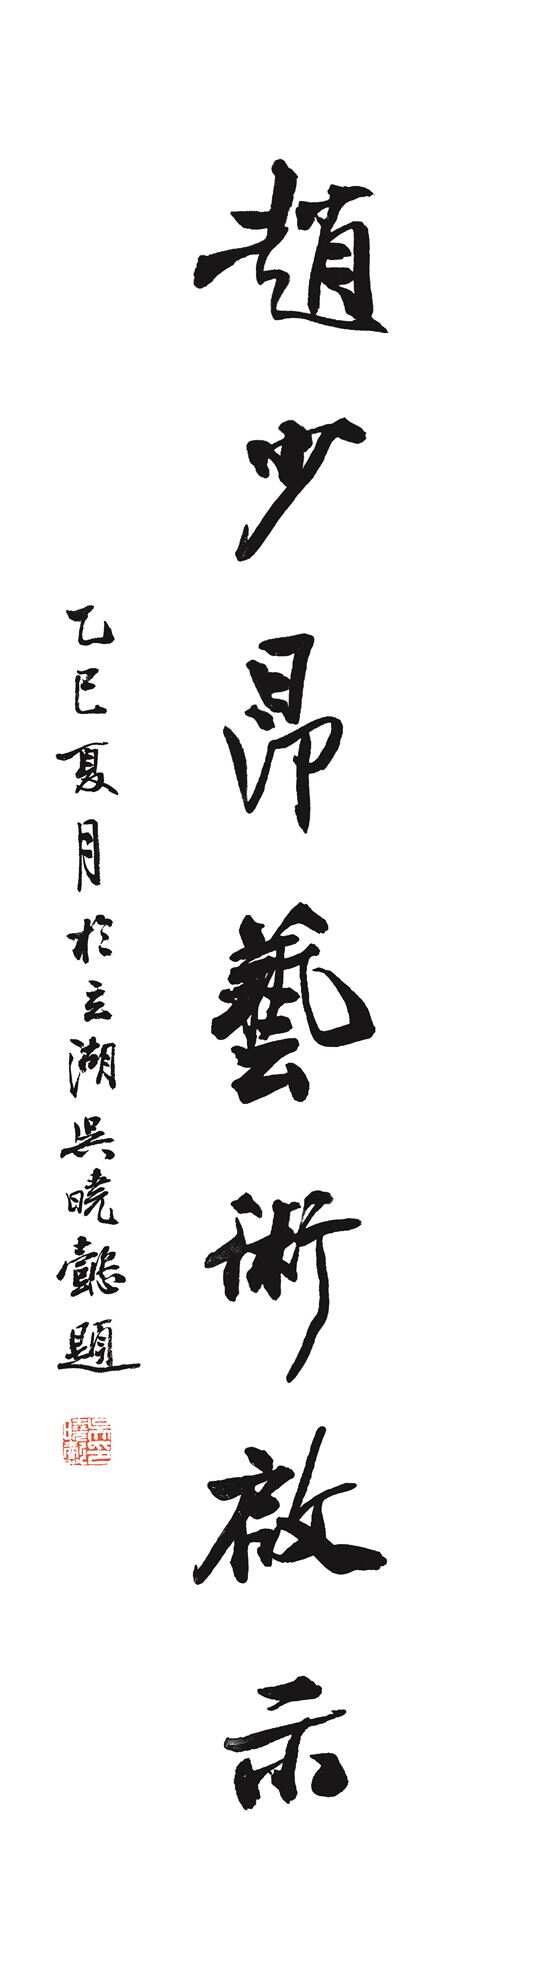 趙少昂藝術啟示
乙巳夏月於立湖吳曉懿題